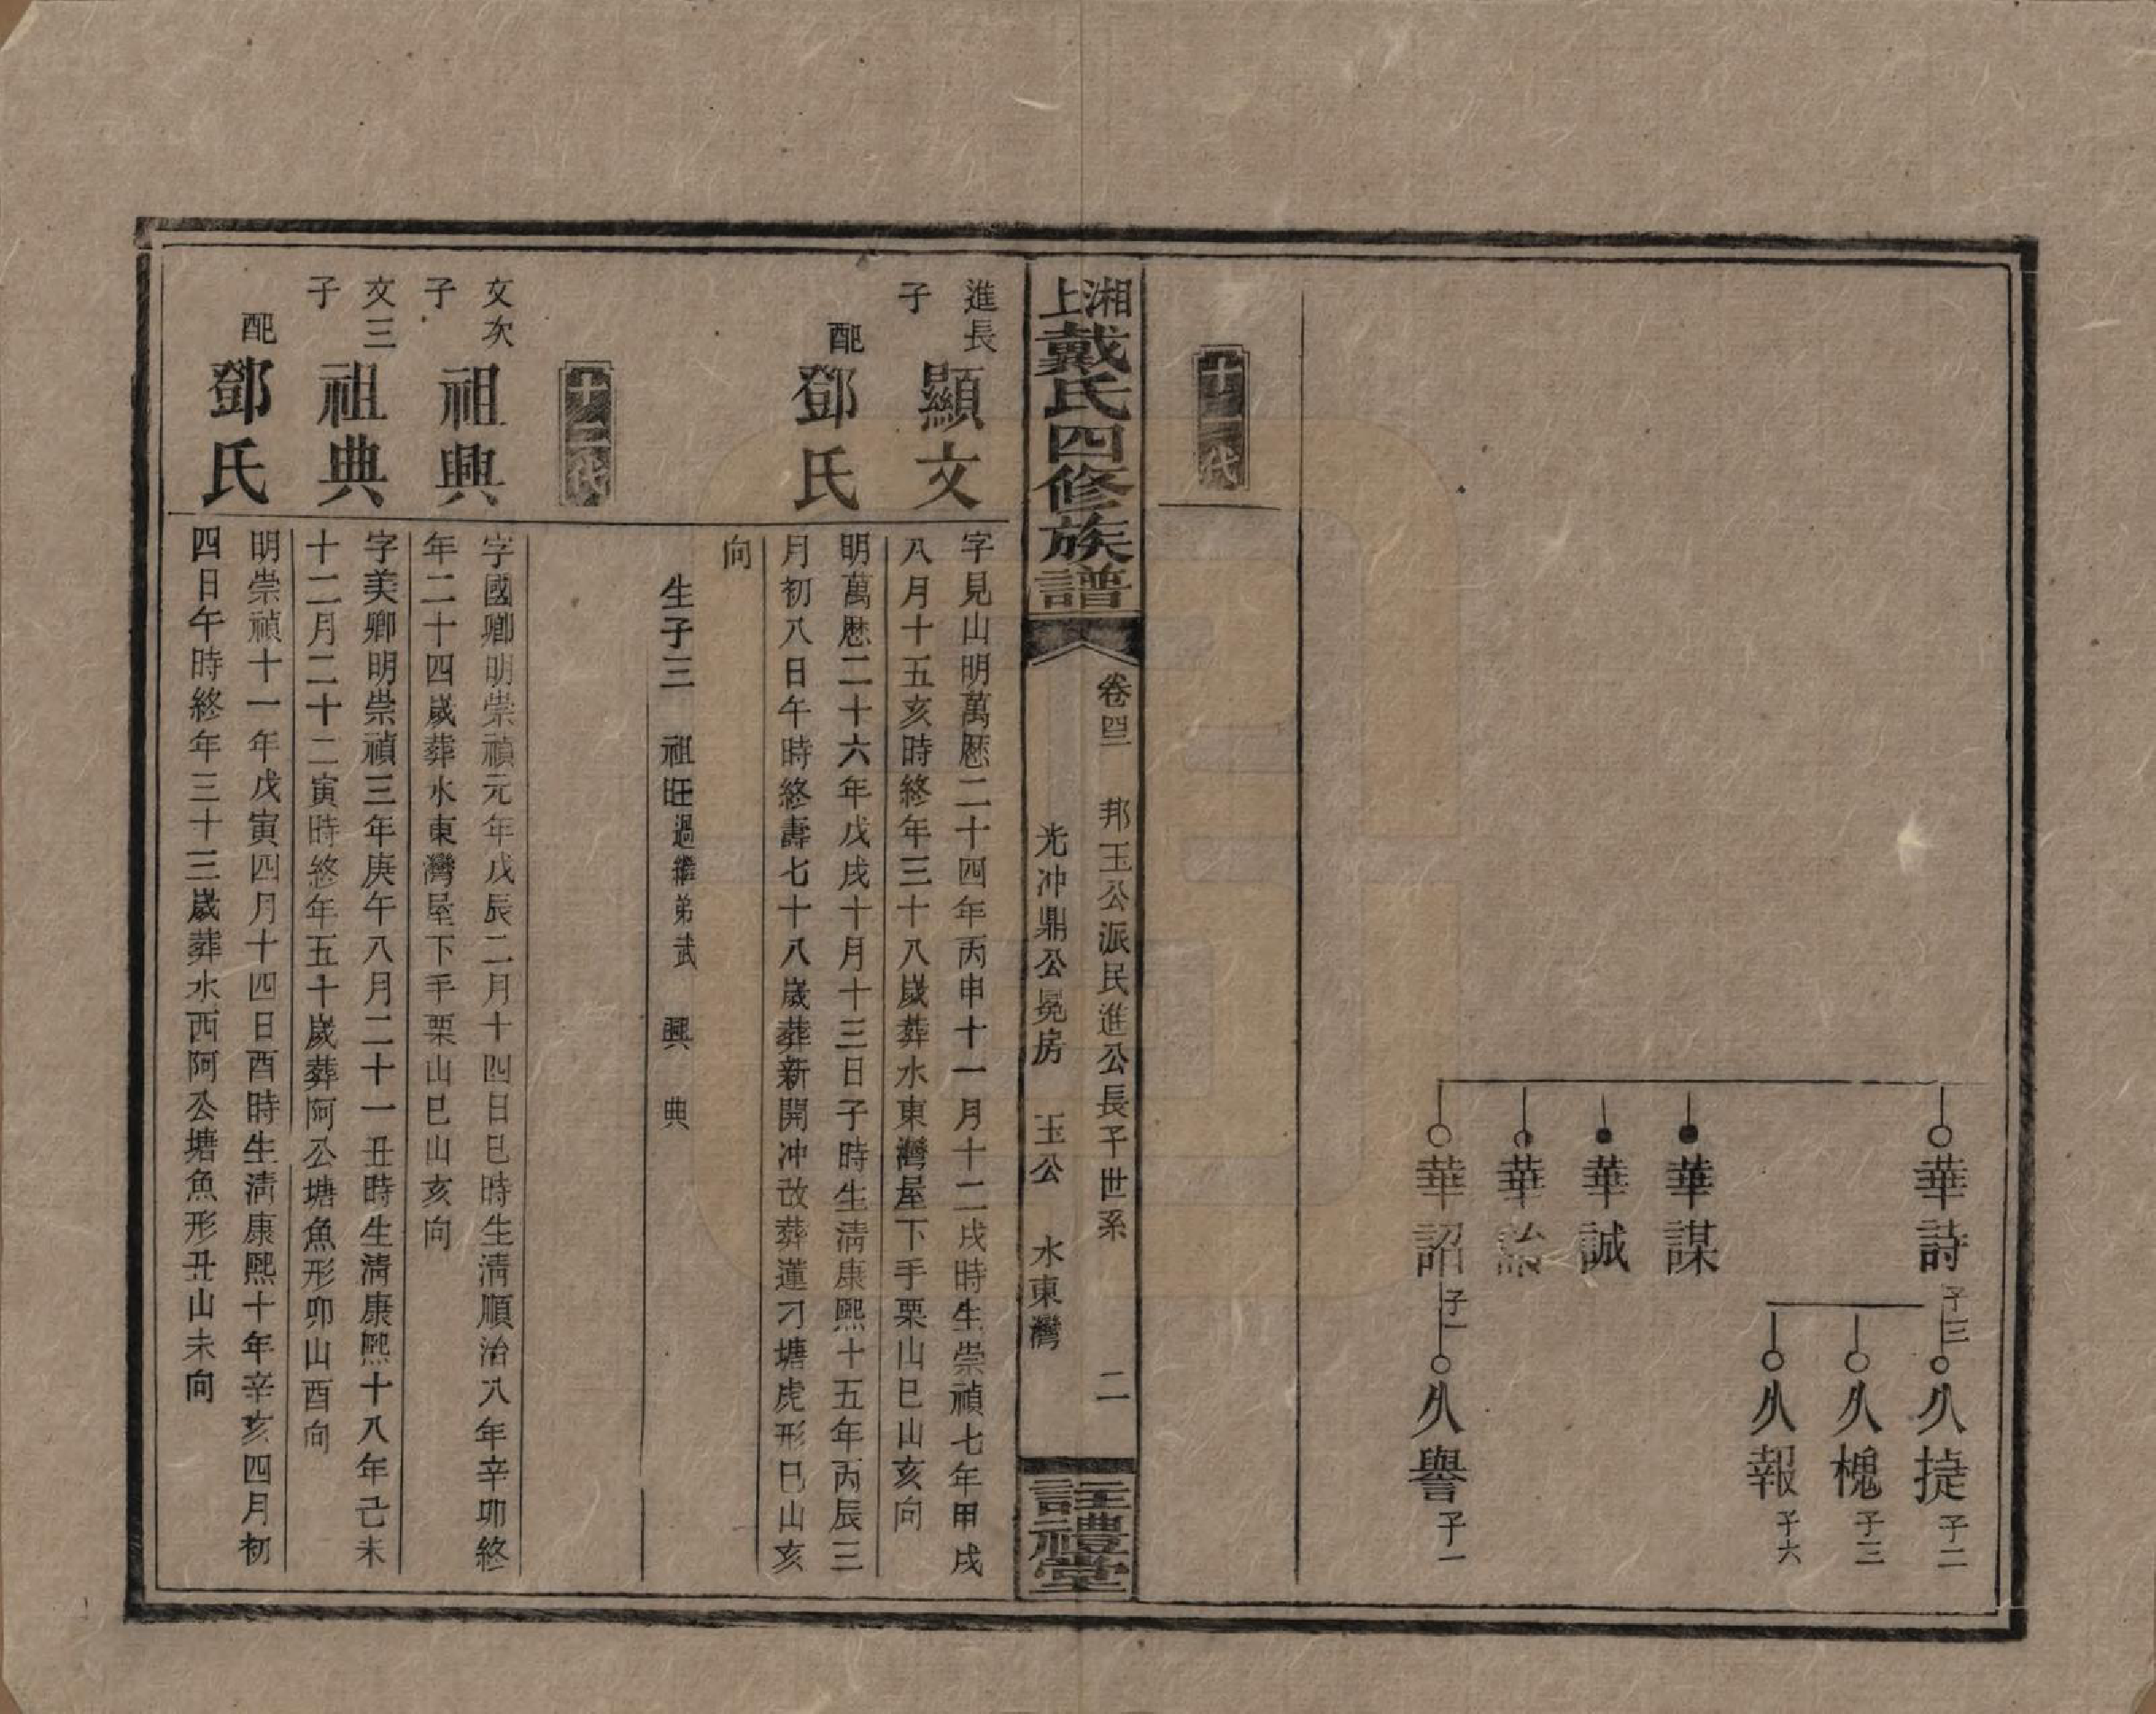 華詩 子三
久捷 子二
久槐 子三
久報 子六
華謀
華誠
華詒
華詔 子一
久譽 子一
十一代
湘上戴氏四修族譜
卷四 邦玉公派民進公長子世系 二
光冲鼎公晃房 玉公 水東灣
註禮堂
進長子 顯文
字見山明萬歷二十四年丙申十一月十二戌時生崇禎七年甲戌
八月十五亥時終年三十八歲葬水東灣屋下手栗山巳山亥向
配 鄧氏
明萬歷二十六年戊戌十月十三日子時生清康熙十五年丙辰三
月初八日午時終壽七十八歲葬新開冲改葬蓮刁塘虎形巳山亥
向
生子三 祖旺過繼弟武 興 典
十二代
文次子 祖興
字國卿明崇禎元年戊辰二月十四日巳時生清順治八年辛卯終
年二十四歲葬水東灣屋下手栗山巳山亥向
文三子 祖典
字美卿明崇禎三年庚午八月二十一丑時生清康熙十八年己未
十二月二十二寅時終年五十歲葬阿公塘魚形卯山酉向
配 鄧氏
明崇禎十一年戊寅四月十四日酉時生清康熙十年辛亥四月初
四日午時終年三十三歲葬水西阿公塘魚形丑山未向